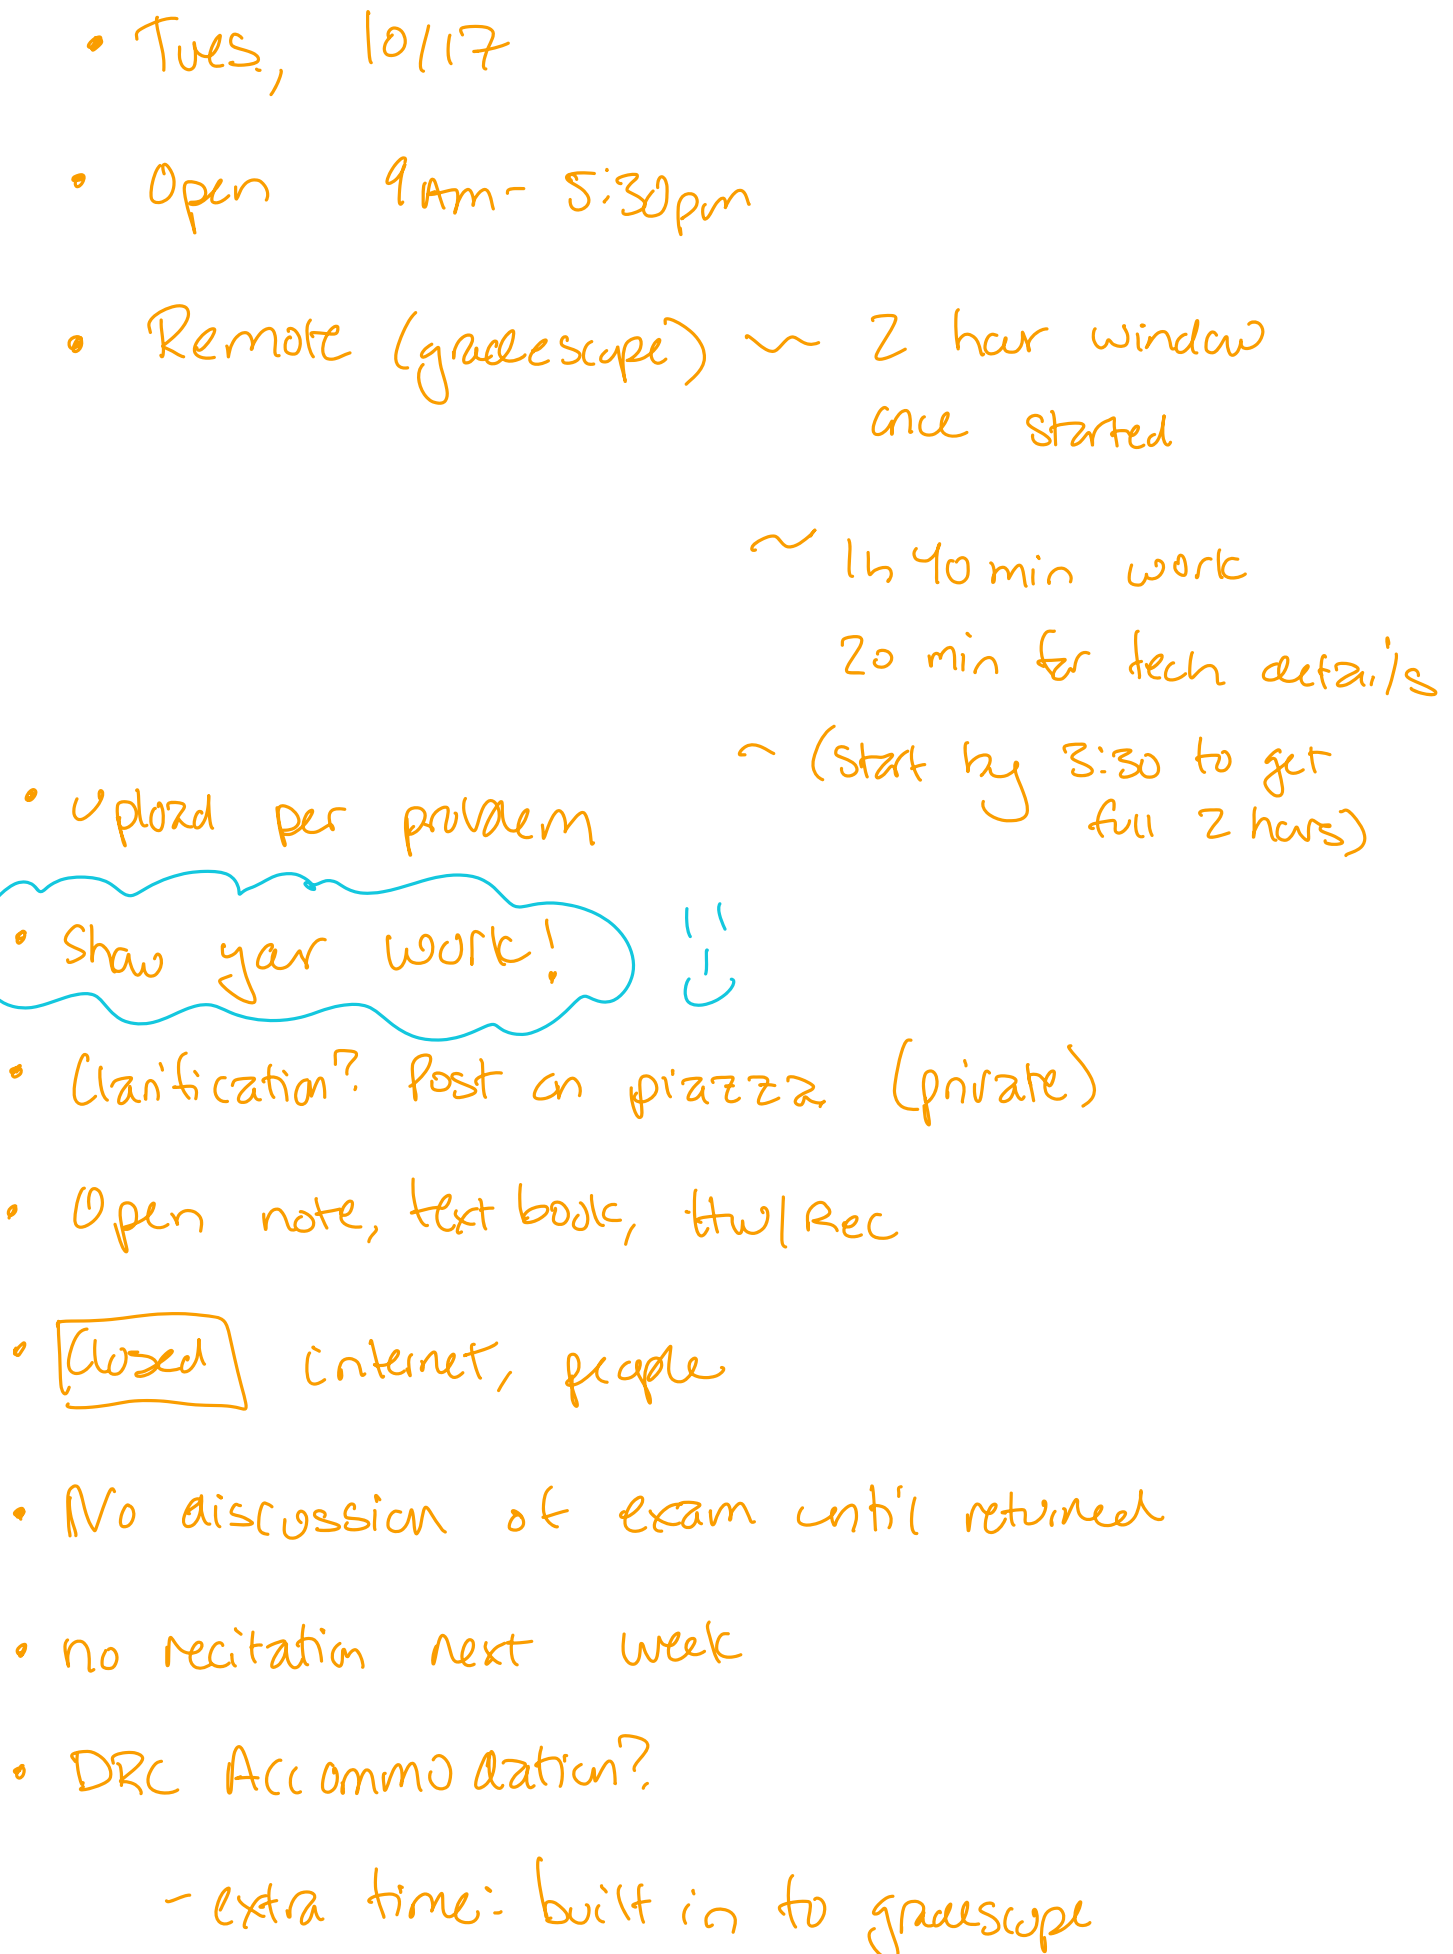 • Tues, 10/17
• Open 9AM - 5:30pm
• Remote (gradescope) ~ 2 hour window
once started
~ 1h 40 min work
20 min for tech details
~ (start by 3:30 to get
full 2 hours)
• Upload per problem
• Show your work!
• Clarification? Post on piazza (private)
• Open note, textbook, HW/Rec
• Closed internet, people
• No discussion of exam until returned
• no recitation next week
• DRC Accommodation?
- extra time: built in to gradescope